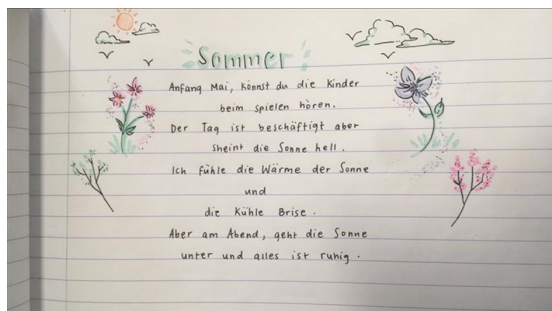 Sommer
Anfang Mai, könnst du die Kinder
beim spielen hören.
Der Tag ist beschäftigt aber
sheint die Sonne hell.
Ich fühle die Wärme der Sonne
und
die Kühle Brise.
Aber am Abend, geht die Sonne
unter und alles ist ruhig.